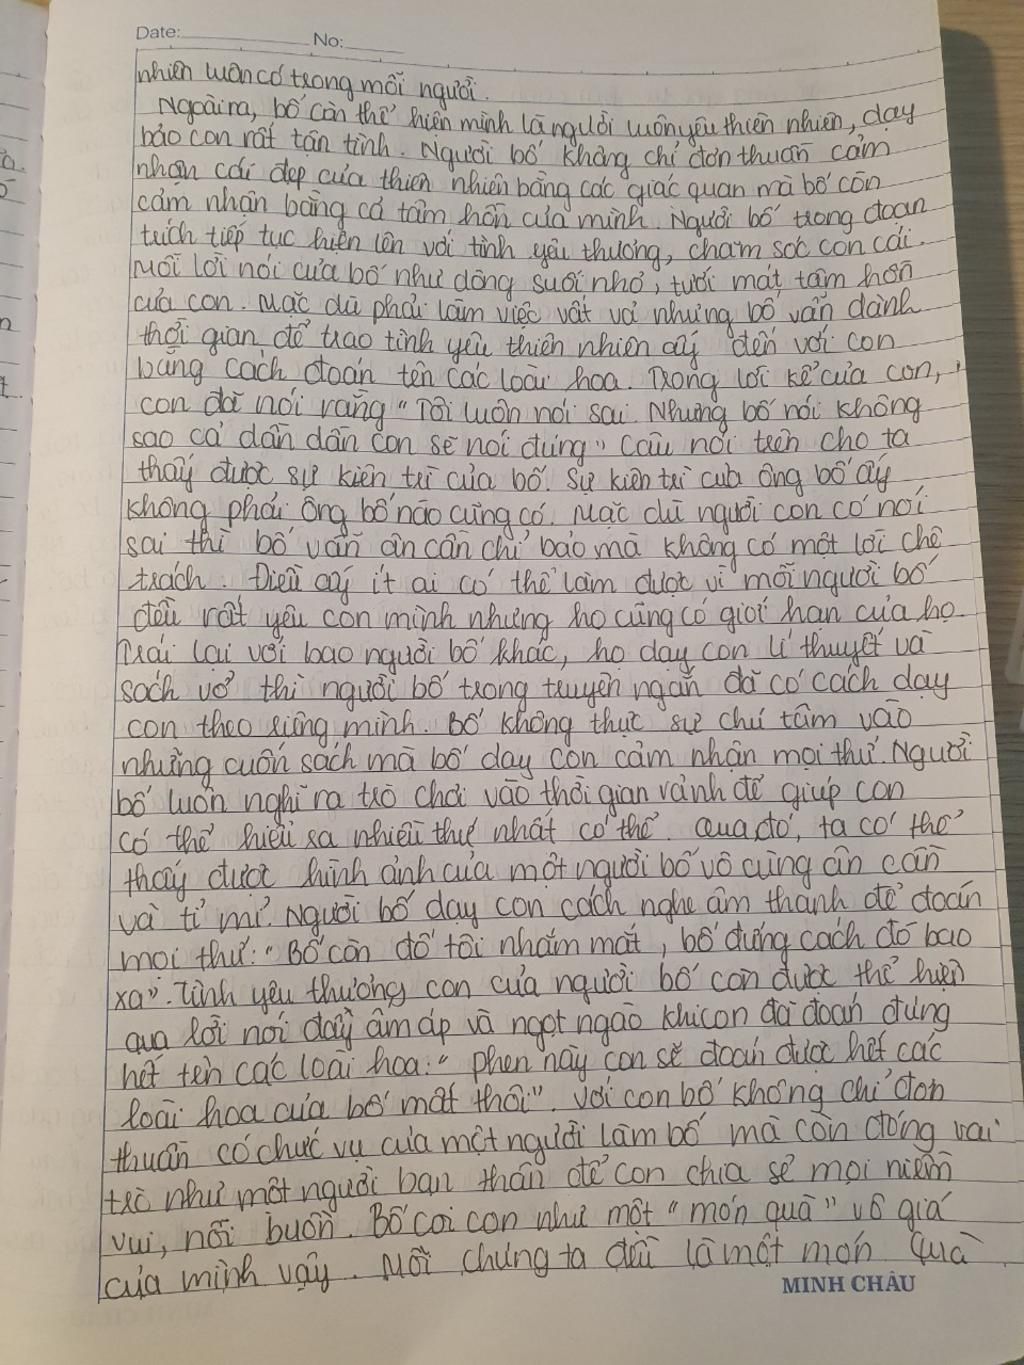 Date: No:
nhiên luôn có trong mỗi người.
Ngoài ra, bố còn thể hiện mình là người luôn yêu thiên nhiên, dạy
bảo con rất tận tình. Người bố không chỉ đơn thuần cảm
nhận cái đẹp của thiên nhiên bằng các giác quan mà bố còn
cảm nhận bằng cả tâm hồn của mình. Người bố trong đoạn
trích tiếp tục hiện lên với tình yêu thương, chăm sóc con cái.
Mỗi lời nói của bố như dòng suối nhỏ, tưới mát tâm hồn
của con. Mặc dù phải làm việc vất vả nhưng bố vẫn dành
thời gian để trao tình yêu thiên nhiên ấy đến với con
bằng cách đoán tên các loài hoa. Trong lời kể của con,
con đã nói rằng "Tôi luôn nói sai. Nhưng bố nói không
sao cả dần dần con sẽ nói đúng" Câu nói trên cho ta
thấy được sự kiên trì của bố. Sự kiên trì của ông bố ấy
không phải ông bố nào cũng có. Mặc dù người con có nói
sai thì bố vẫn ân cần chỉ bảo mà không có một lời chê
trách. Điều ấy ít ai có thể làm được vì mỗi người bố
đều rất yêu con mình nhưng họ cũng có giới hạn của họ.
Trái lại với bao người bố khác, họ dạy con lí thuyết và
sách vở thì người bố trong truyện ngắn đã có cách dạy
con theo riêng mình. Bố không thực sự chú tâm vào
những cuốn sách mà bố dạy con cảm nhận mọi thứ. Người
bố luôn nghĩ ra trò chơi vào thời gian rảnh để giúp con
có thể hiểu xa nhiều thứ nhất có thể. Qua đó, ta có thể
thấy được hình ảnh của một người bố vô cùng ân cần
và tỉ mỉ. Người bố dạy con cách nghe âm thanh để đoán
mọi thứ: "Bố còn đố tôi nhắm mắt, bố đứng cách đó bao
xa". Tình yêu thương con của người bố còn được thể hiện
qua lời nói đầy ấm áp và ngọt ngào khi con đã đoán đúng
hết tên các loài hoa: "phen này con sẽ đoán được hết các
loài hoa của bố mất thôi". Với con bố không chỉ đơn
thuần có chức vụ của một người làm bố mà còn đóng vai
trò như một người bạn thân để con chia sẻ mọi niềm
vui, nỗi buồn. Bố coi con như một "món quà" vô giá
của mình vậy. Mỗi chúng ta đều là một món quà
MINH CHÂU